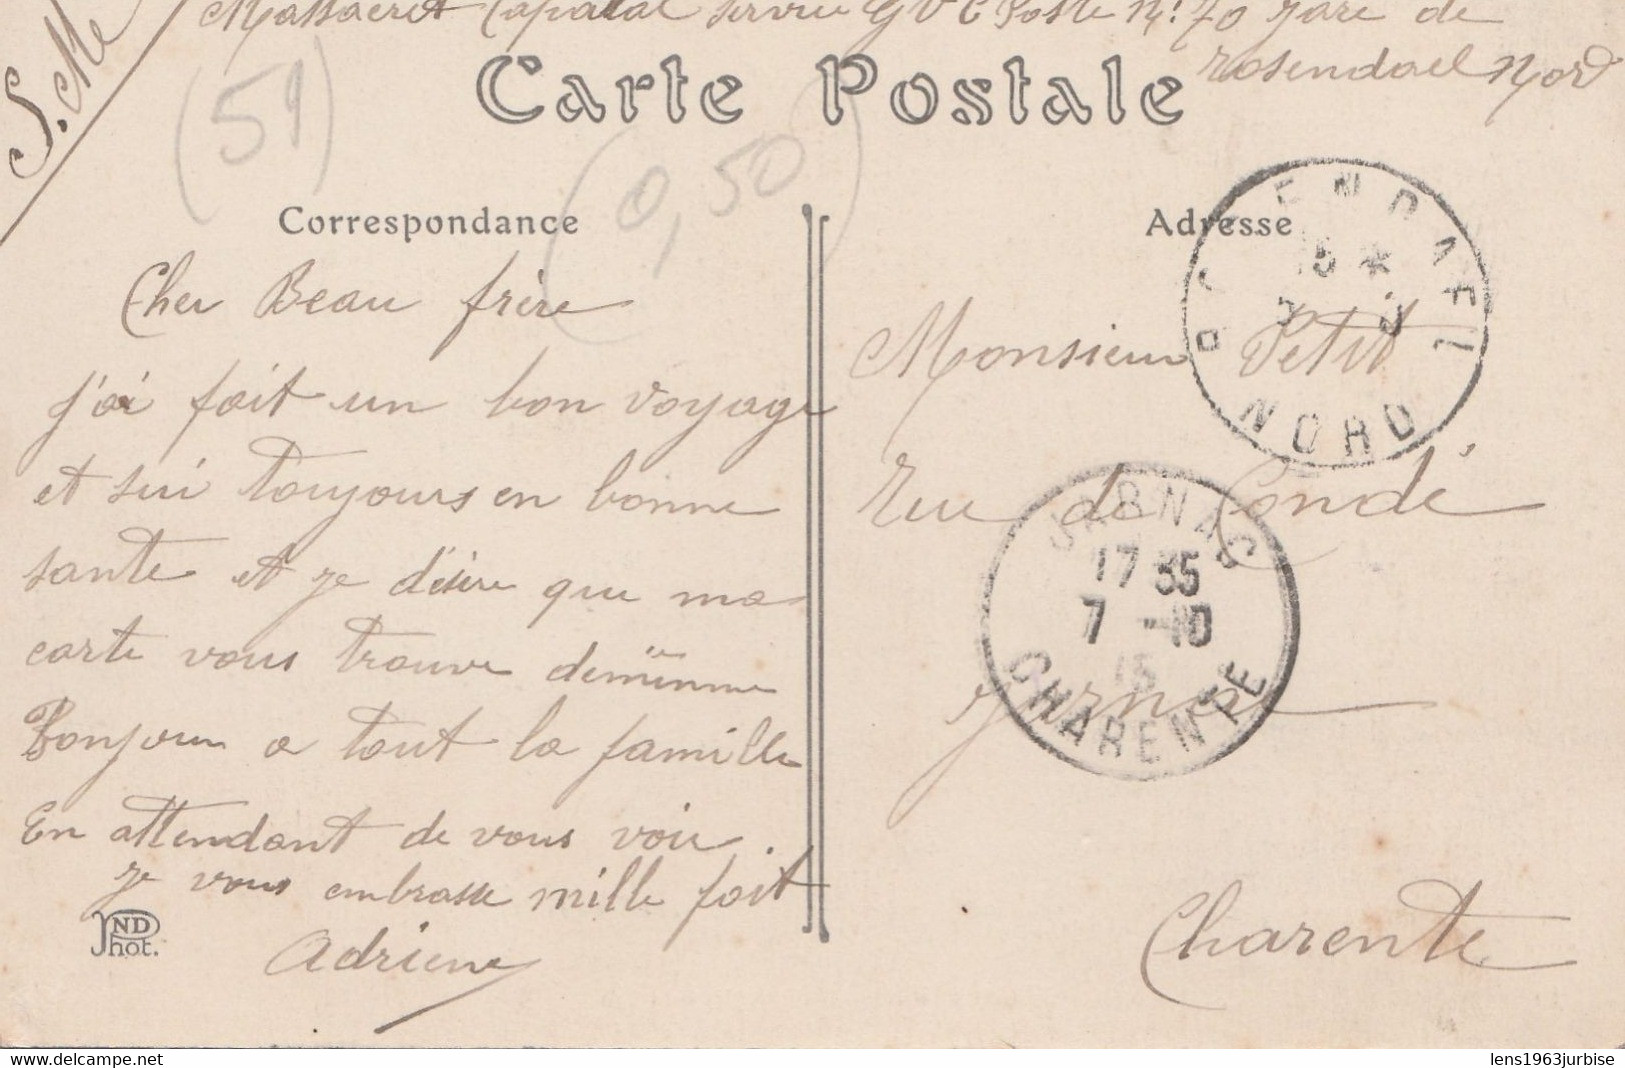 Massacret Caporal service G V C Poste N: 70 gare de
rosendael Nord
S. M
(59)
(0,50)
Carte Postale
Correspondance
Cher Beau frère
j'ai fait un bon voyage
et sui toujours en bonne
sante et je désire que ma
carte vous trouve demeinme
Bonjour a tout la famille
En attendant de vous voir
je vous embrasse mille foit
Adrien
ND
Phot.
Adresse
Monsieur Petit
Rue de Condé
Jarnac
Charente
NORD
JARNAC
17 35
7 -10
15
CHARENTE
lens1963jurbise